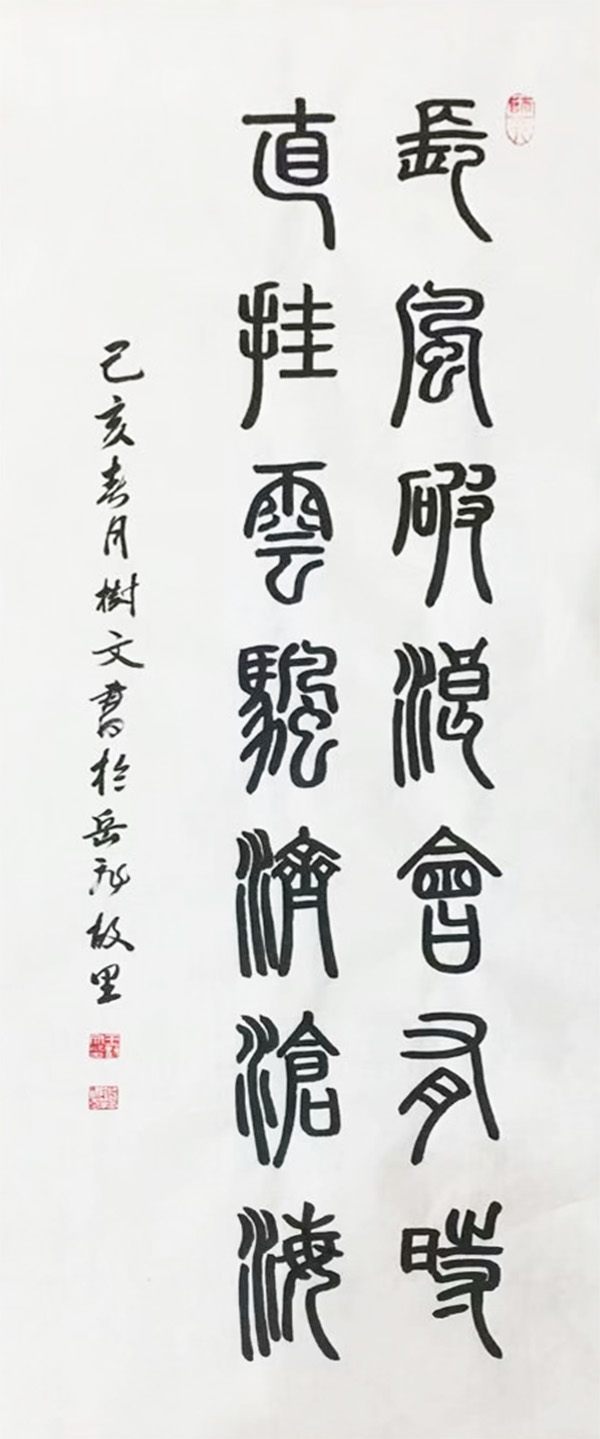 長風破浪會有時
直挂雲颿濟滄海
己亥春月樹文書於岳飛故里